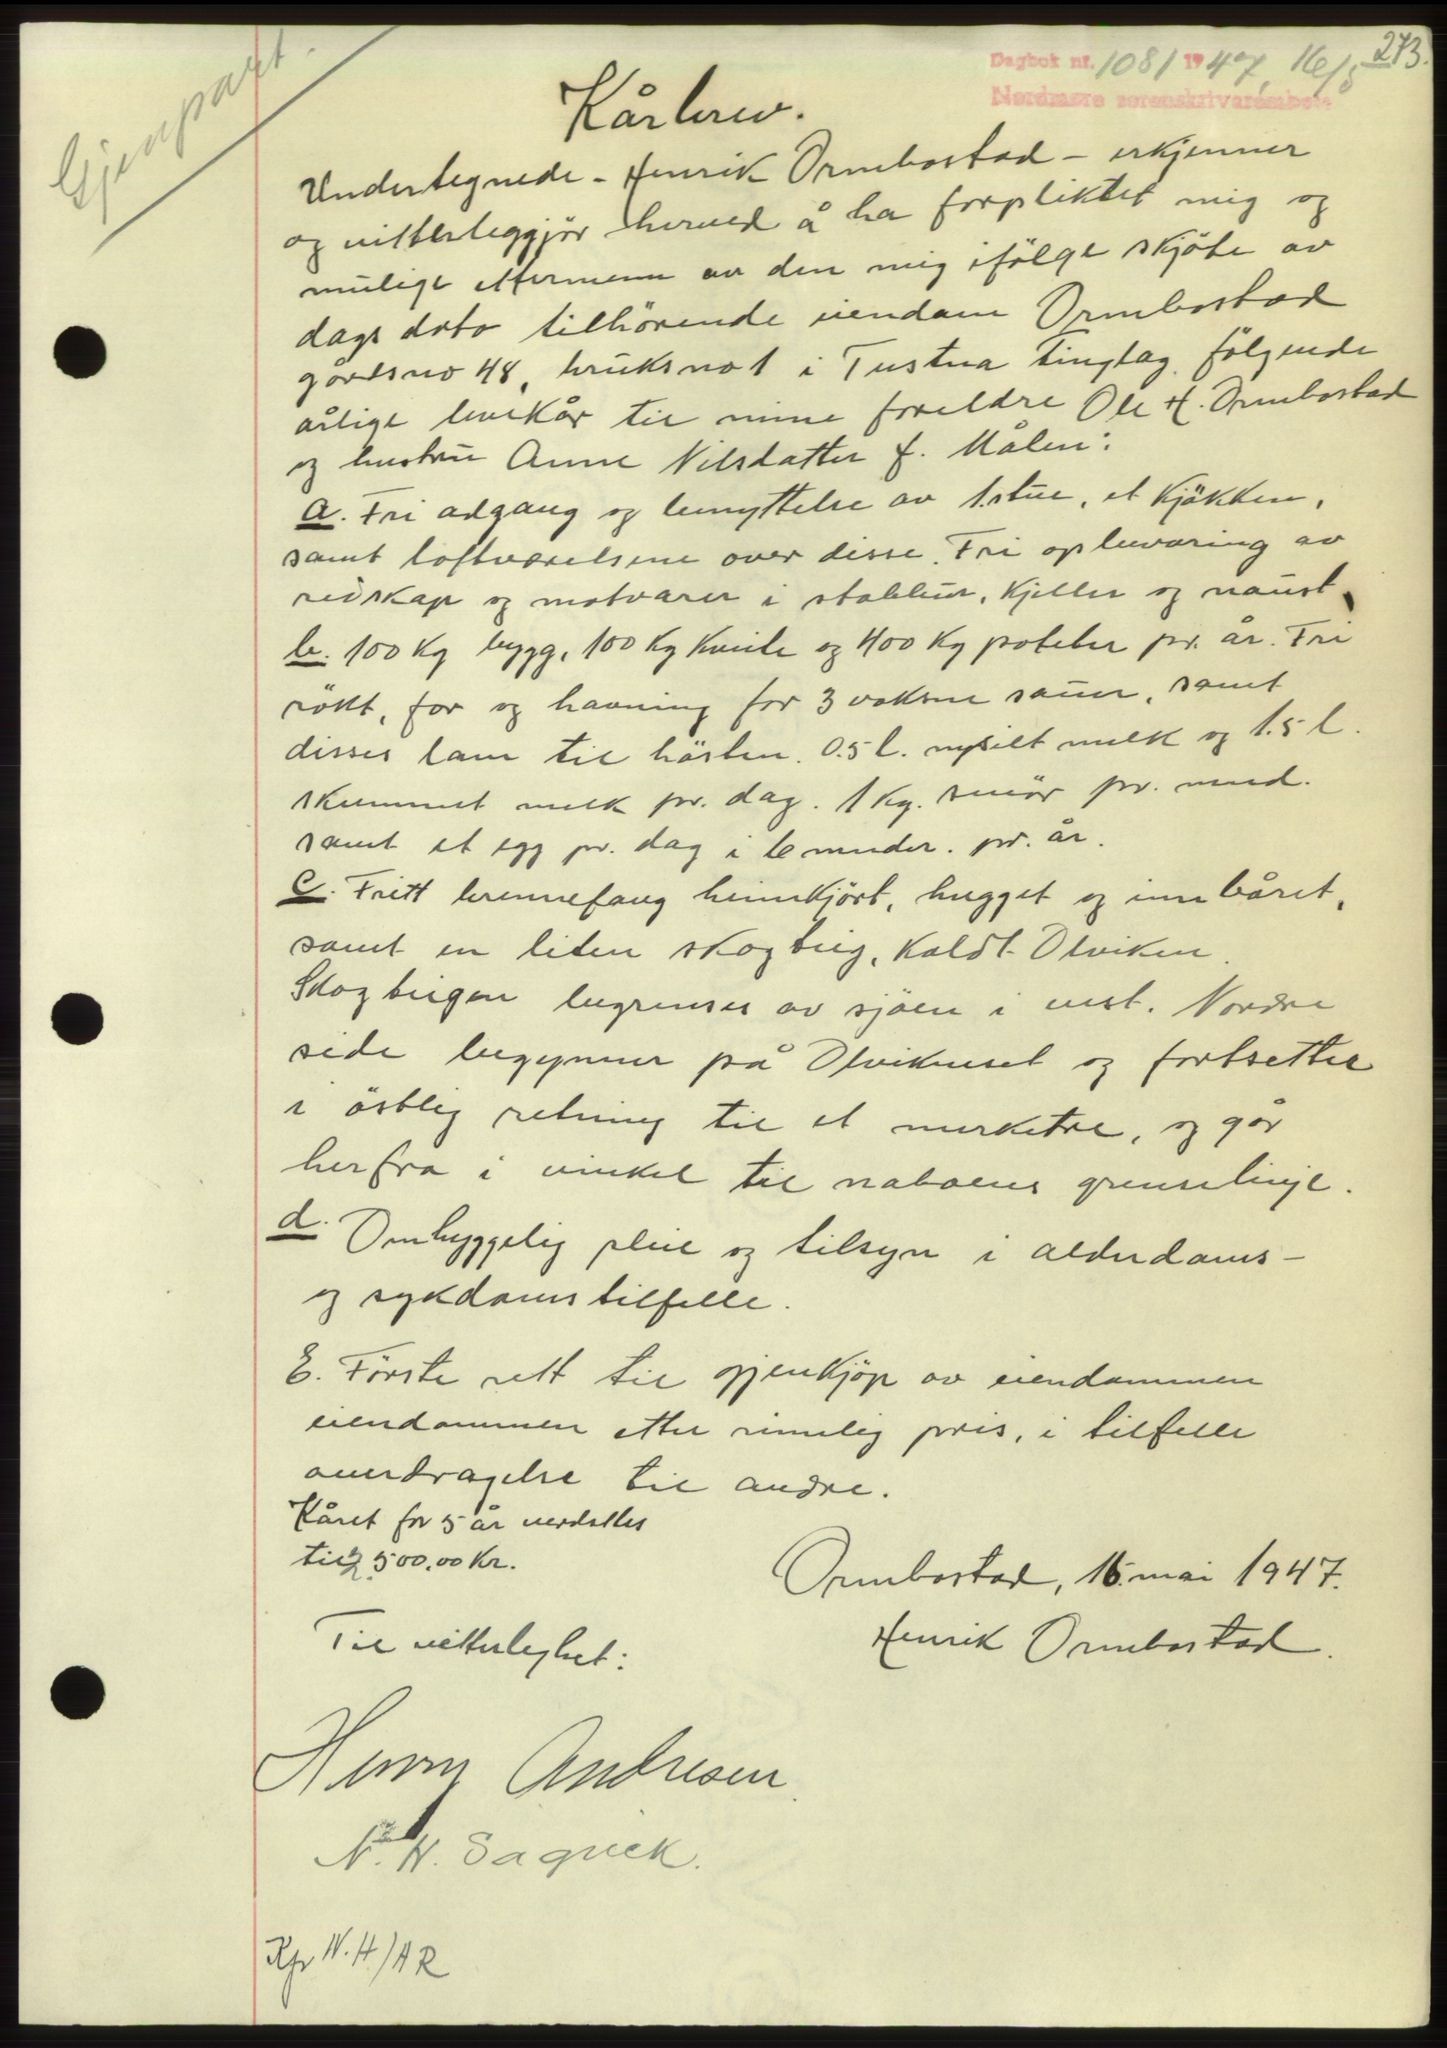 273.
Dagbok nr. 1081 1947, 16/5
Nordmøre sorenskrivarembete
Gjenpart.
Kårbrev.
Undertegnede - Henrik Ormbostad - erkjenner
og vitterleggjör herved å ha forpliktet mig og
mulige ettermenn av den mig ifölge skjöte av
dags dato tilhörende eiendom Ormbostad
gårdsno 48, bruksno 1 i Tustna Tinglag, fölgende
årlige levekår til mine foreldre Ole H. Ormbostad
og hustru Anne Nilsdatter f. Målen:
a. Fri adgang og benyttelse av 1. stue, et kjökken,
samt loftværelsene over disse. Fri opbevaring av
redskap og matvarer i stabbur, kjeller og naust.
b. 100 kg bygg, 100 kg kveite og 400 kg poteter pr. år. Fri
rökt, for og havning for 3 voksne sauer, samt
disses lam til hösten. 0.5 l. nysilt melk og 1.5 l.
skummet melk pr. dag. 1 kg. smör pr. mnd.
samt et egg pr. dag i 6 mnder. pr. år.
c. Fritt brennefang heimkjört, hugget og innbåret,
samt en liten skogteig, kaldt Olviken.
Skogteigen begrenses av sjöen i vest. Nordre
side begynner på Olvikneset og fortsetter
i östlig retning til et merketre, og går
herfra i vinkel til naboens grenselinje.
d. Omhyggelig pleie og tilsyn i alderdoms-
og sykdomstilfelle.
E. Förste rett til gjenkjöp av eiendommen
eiendommen etter rimelig pris, i tilfelle
overdragelse til andre.
Kåret for 5 år verdsettes
til 2500,00 Kr.
Ormbostad, 16. mai 1947.
Henrik Ormbostad.
Til vitterlighet:
Andresen
N. H. Sagvick.
Kp N.H/AR